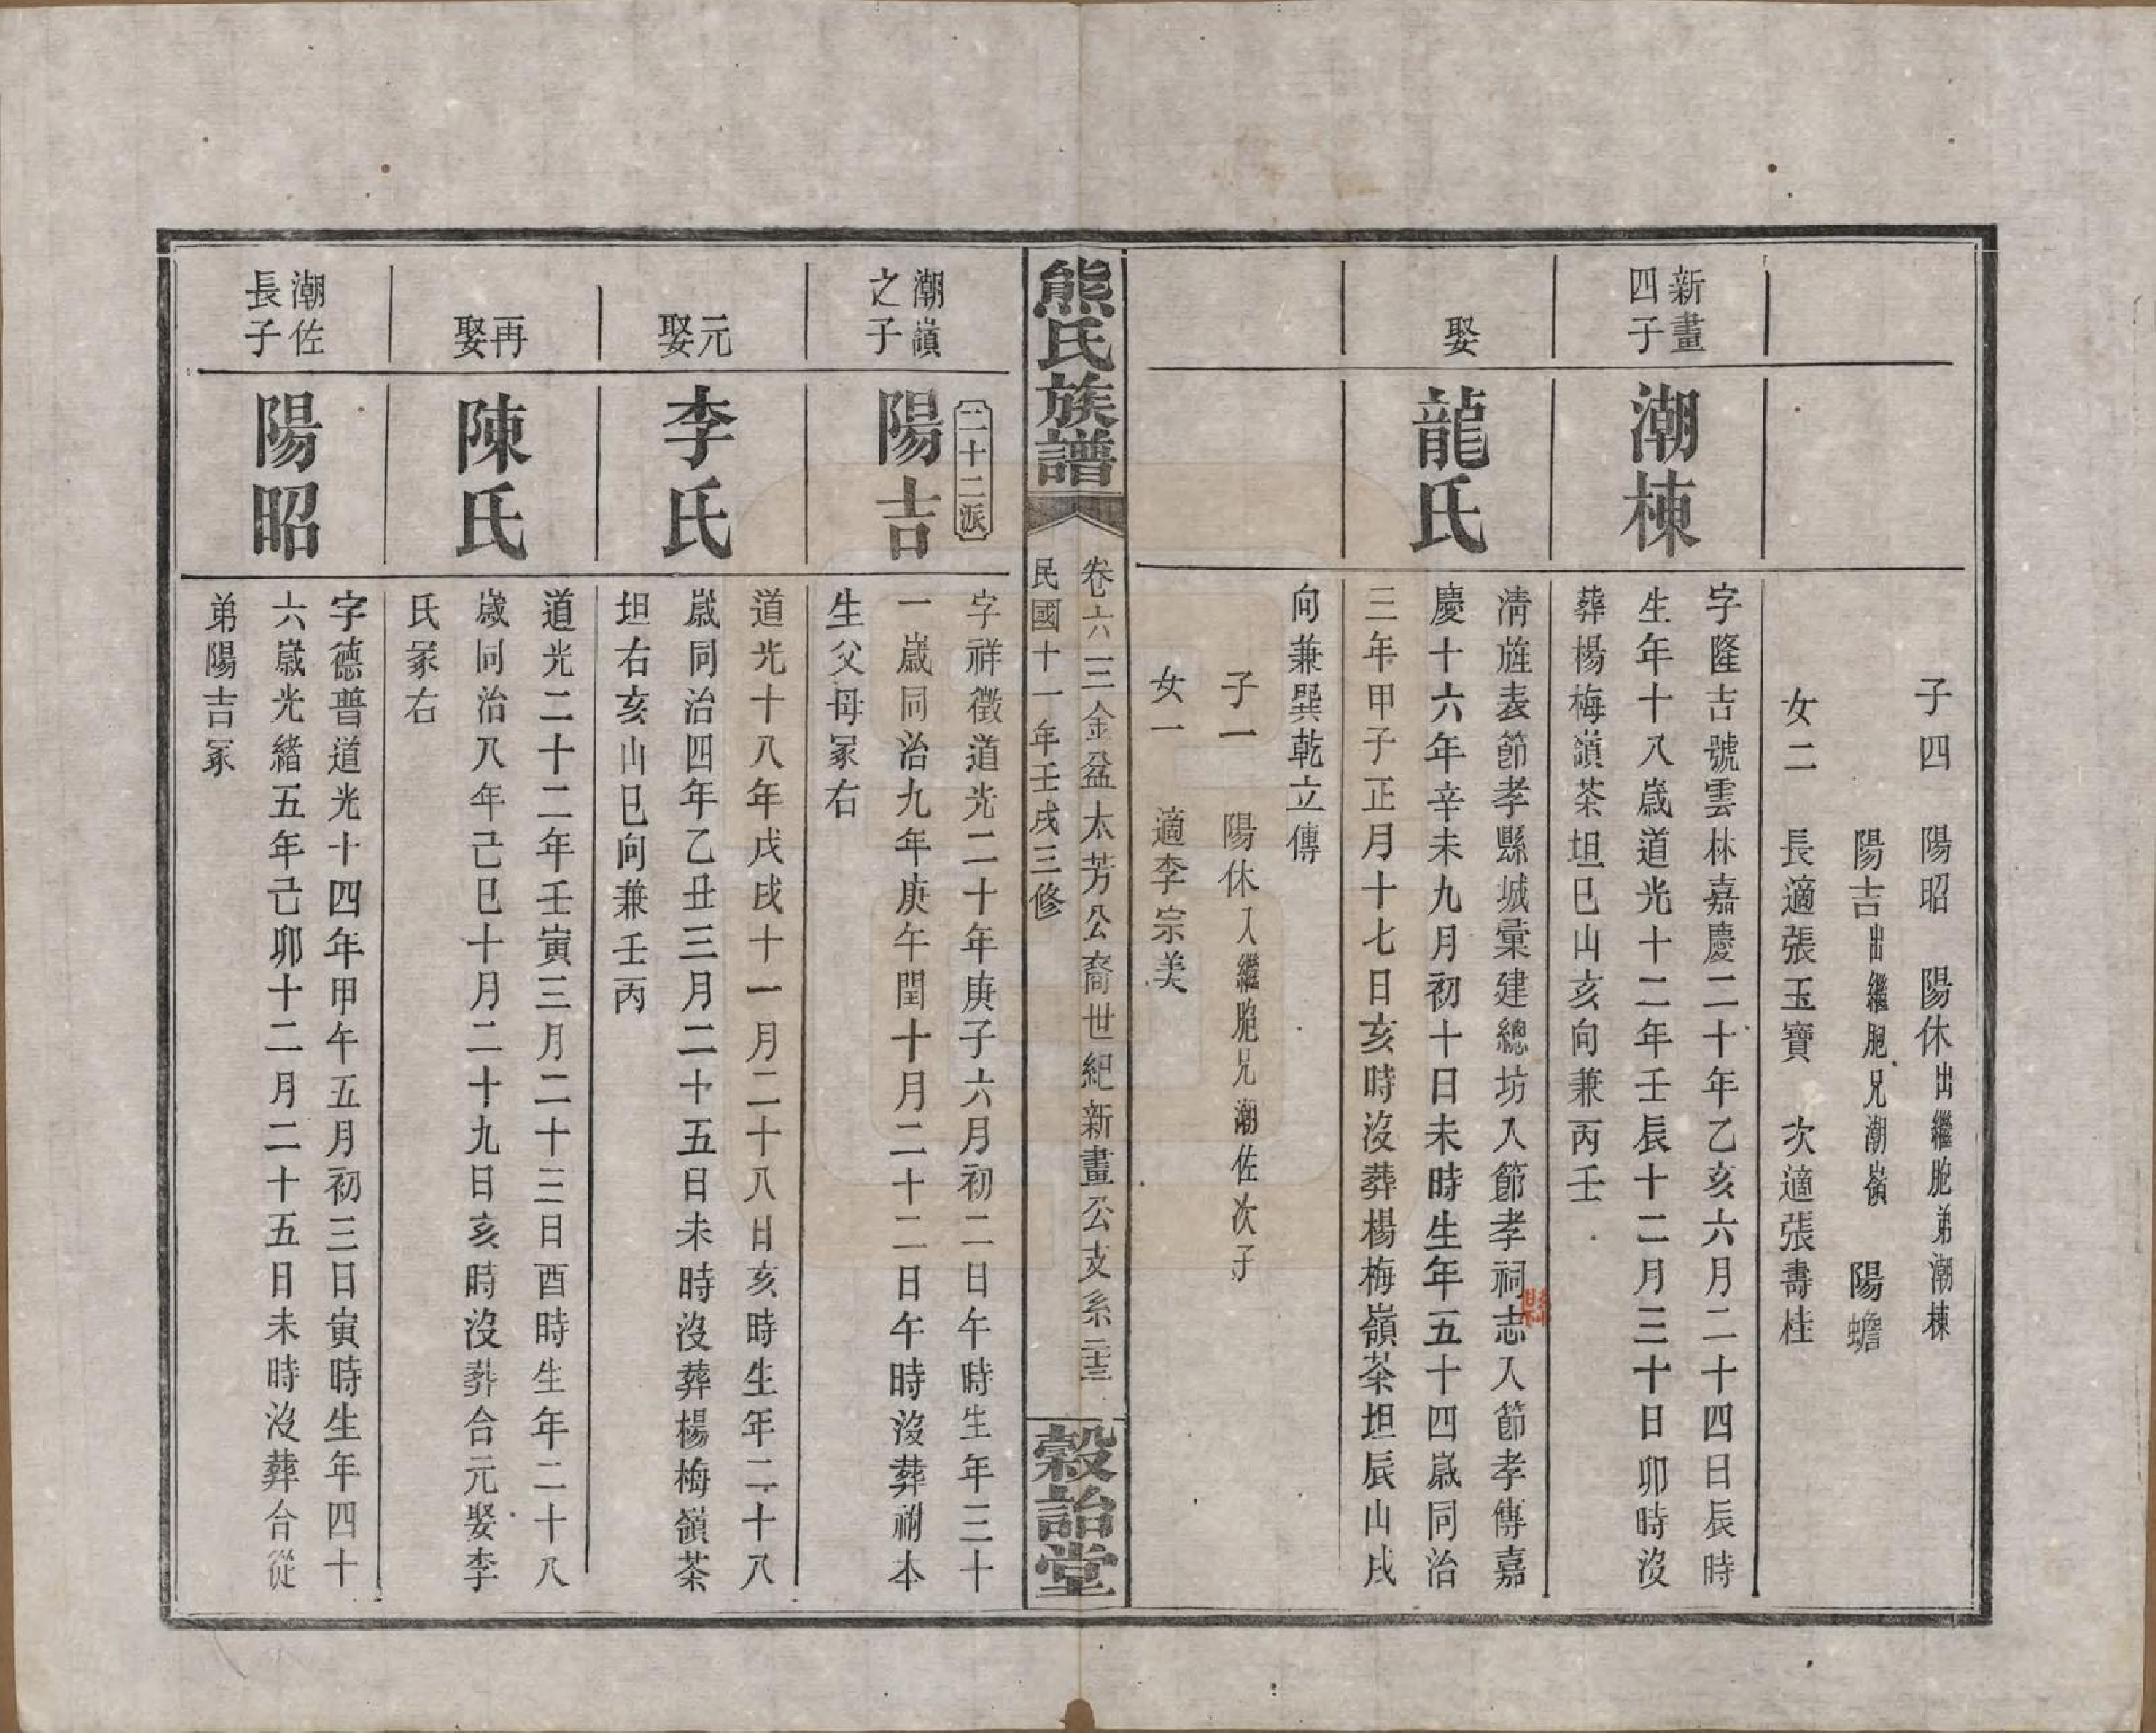 子四 陽昭 陽休出繼胞弟潮棟
陽吉出繼胞兄潮嶺 陽蟾
女二 長適張玉寶 次適張壽桂
新畫
四子
潮棟
字隆吉號雲林嘉慶二十年乙亥六月二十四日辰時
生年十八歲道光十二年壬辰十二月三十日卯時沒
葬楊梅嶺茶坦巳山亥向兼丙壬
娶
龍氏
清旌表節孝縣城彙建總坊入節孝祠志入節孝傳嘉
縣
慶十六年辛未九月初十日未時生年五十四歲同治
三年甲子正月十七日亥時沒葬楊梅嶺茶坦辰山戌
向兼巽乾立傳
子一 陽休入繼胞兄潮佐次子
女一 適李宗美
熊氏族譜
卷六 三金盆太芳公裔世紀新畫公支系 二十三
民國十一年壬戌三修
穀詒堂
二十二派
潮嶺
之子
陽吉
字祥徵道光二十年庚子六月初二日午時生年三十
一歲同治九年庚午閏十月二十二日午時沒葬祔本
生父母冢右
元
娶
李氏
道光十八年戊戌十一月二十八日亥時生年二十八
歲同治四年乙丑三月二十五日未時沒葬楊梅嶺茶
坦右亥山巳向兼壬丙
再
娶
陳氏
道光二十二年壬寅三月二十三日酉時生年二十八
歲同治八年己巳十月二十九日亥時沒葬合元娶李
氏冢右
潮佐
長子
陽昭
字德普道光十四年甲午五月初三日寅時生年四十
六歲光緒五年己卯十二月二十五日未時沒葬合從
弟陽吉冢